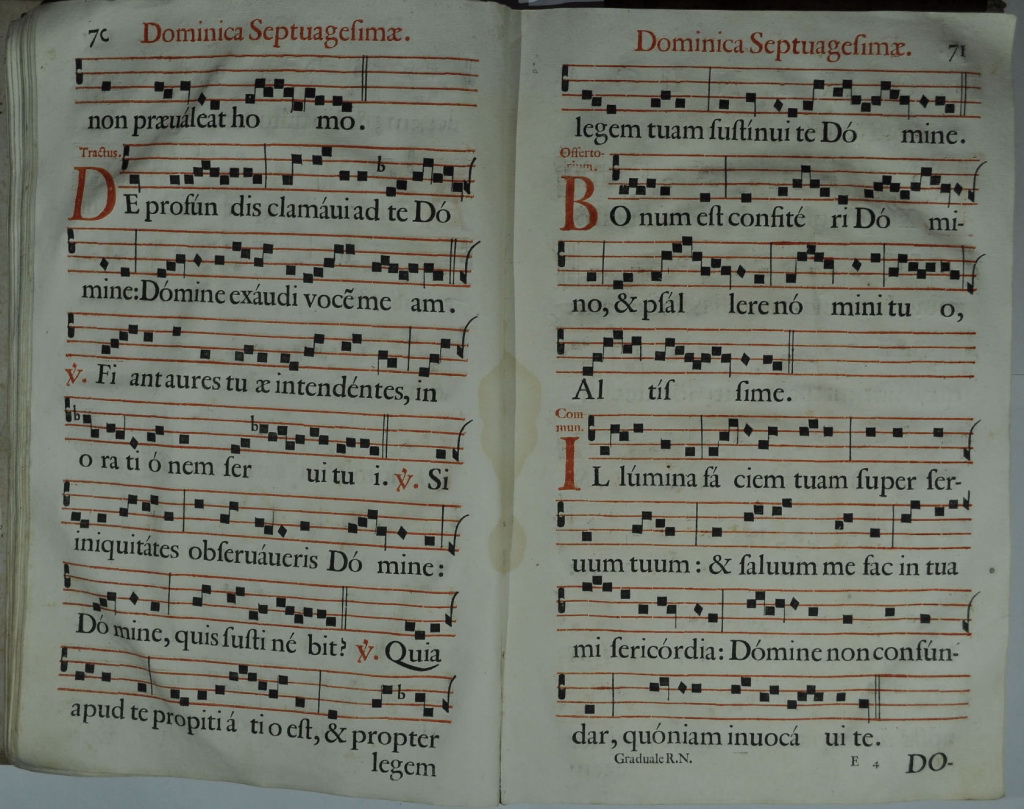 70 Dominica Septuageſimæ.
non præuáleat ho mo.
Tractus.
DE profún dis clamáui ad te Dó
mine: Dómine exáudi vocẽ me am.
℣. Fi ant aures tu æ intendéntes, in
o ra ti ó nem ſer ui tu i. ℣. Si
iniquitátes obſeruáueris Dó mine:
Dó mine, quis ſuſti né bit? ℣. Quia
apud te propiti á ti o eſt, & propter
legem
Dominica Septuageſimæ. 71
legem tuam ſuſtínui te Dó mine.
Offerto-
rium.
BO num eſt confité ri Dó mi-
no, & pſál lere nó mini tu o,
Al tíſ ſime.
Com
mun.
IL lúmina fá ciem tuam ſuper ſer-
uum tuum: & ſaluum me fac in tua
mi ſericórdia: Dómine non confún-
dar, quóniam inuocá ui te.
Graduale R.N. E 4 DO-